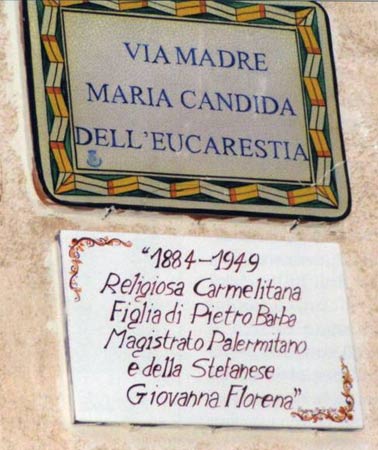 VIA MADRE
MARIA CANDIDA
DELL'EUCARESTIA
"1884-1949
Religiosa Carmelitana
Figlia di Pietro Barba
Magistrato Palermitano
e della Stefanese
Giovanna Florena"